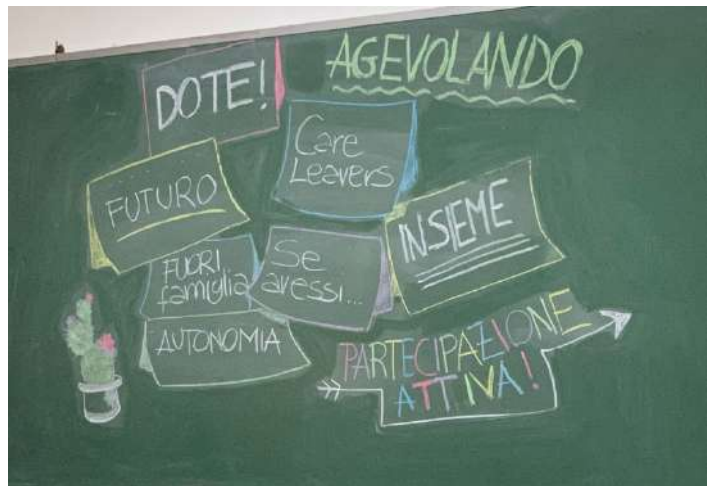 AGEVOLANDO
DOTE!
Care
Leavers
FUTURO
INSIEME
FUORI
famiglia
Se
avessi...
AUTONOMIA
PARTECIPAZIONE
ATTIVA!